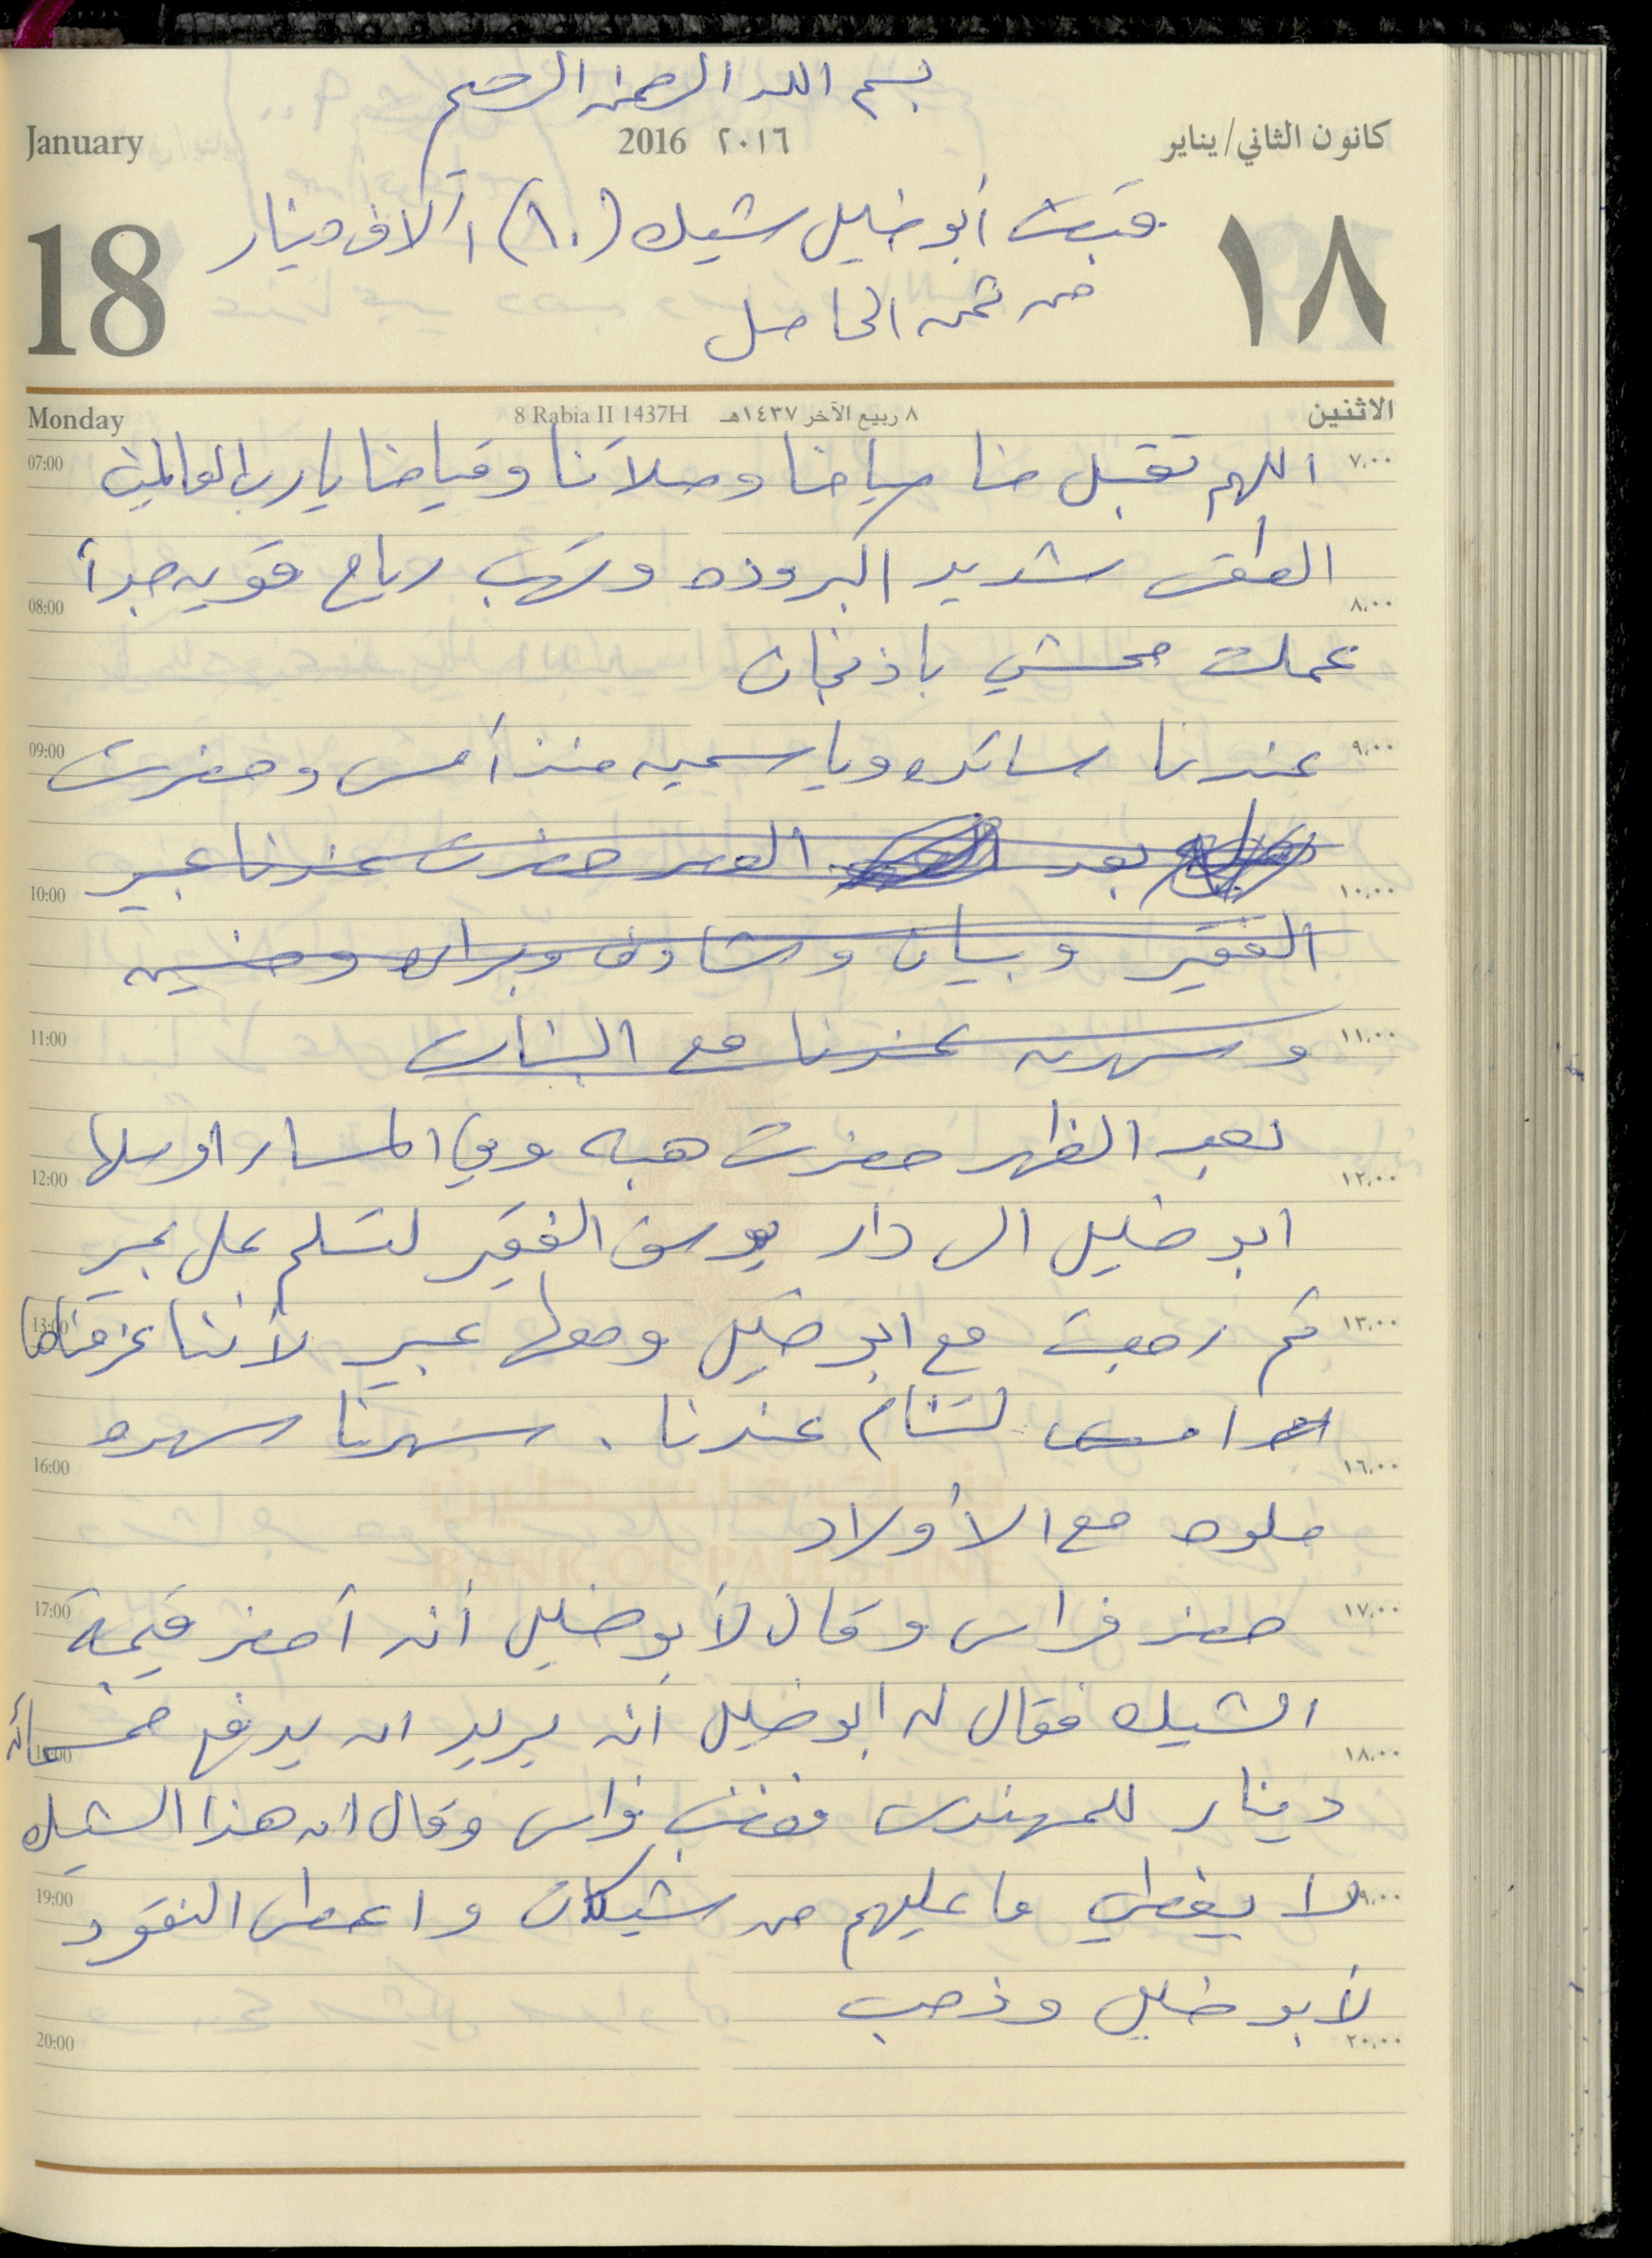 بسم الله الرحمن الرحيم
January 2016 ٢٠١٦ كانون الثاني/يناير
قبض أبو خليل شيك (١٠) آلاف دينار
18 ١٨
من ثمن الحاصل
Monday 8 Rabia II 1437H ٨ ربيع الآخر ١٤٣٧هـ الاثنين
07:00 اللهم تقبل منا صيامنا وصلاتنا وقيامنا يا رب العالمين ٧،٠٠
الطقس شديد البروده وتهب رياح قويه جداً
08:00 ٨،٠٠
عملت محشي باذنجان
09:00 عندنا ساره وياسمين منذ أمس وحضرت ٩،٠٠
بعد العصر حضرت عندنا عبير
10:00 ١٠،٠٠
الفقير وبيان وشادن وبراء وحنين
11:00 وسهرت عندنا مع البنات ١١،٠٠
بعد الظهر حضرت هبه وفي المساء اوصلها
12:00 ١٢،٠٠
ابو خليل الى دار يوسف الفقير لتسلم على عبير
13:00 ثم رجعت مع ابو خليل ومعها عبير لأننا عزمناها ١٣،٠٠
امس لتنام عندنا. سهرنا سهره
16:00 ١٦،٠٠
حلوه مع الأولاد
17:00 حضر فراس وقال لأبو خليل أنه أحضر قيمة ١٧،٠٠
الشيك فقال له ابو خليل انه يريد ان يدفع خمسمائة
18:00 ١٨،٠٠
دينار للمهندس فغضب فراس وقال ان هذا الشيك
19:00 لا يغطي ما عليهم من شيكات واعطى النقود ١٩،٠٠
لأبو خليل وذهب
20:00 ٢٠،٠٠
بنك فلسطين
BANK OF PALESTINE